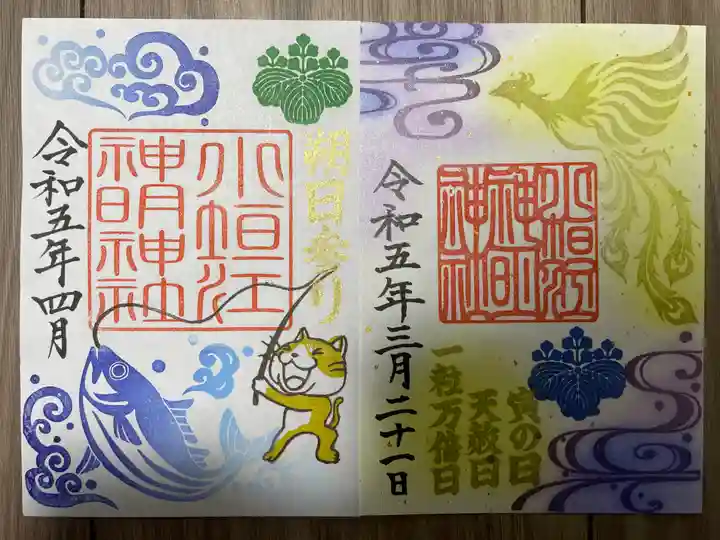 朔日参り
小垣江
神明
神社
令和五年四月
小垣江
神明
神社
寅の日
天赦日
一粒万倍日
令和五年三月二十一日